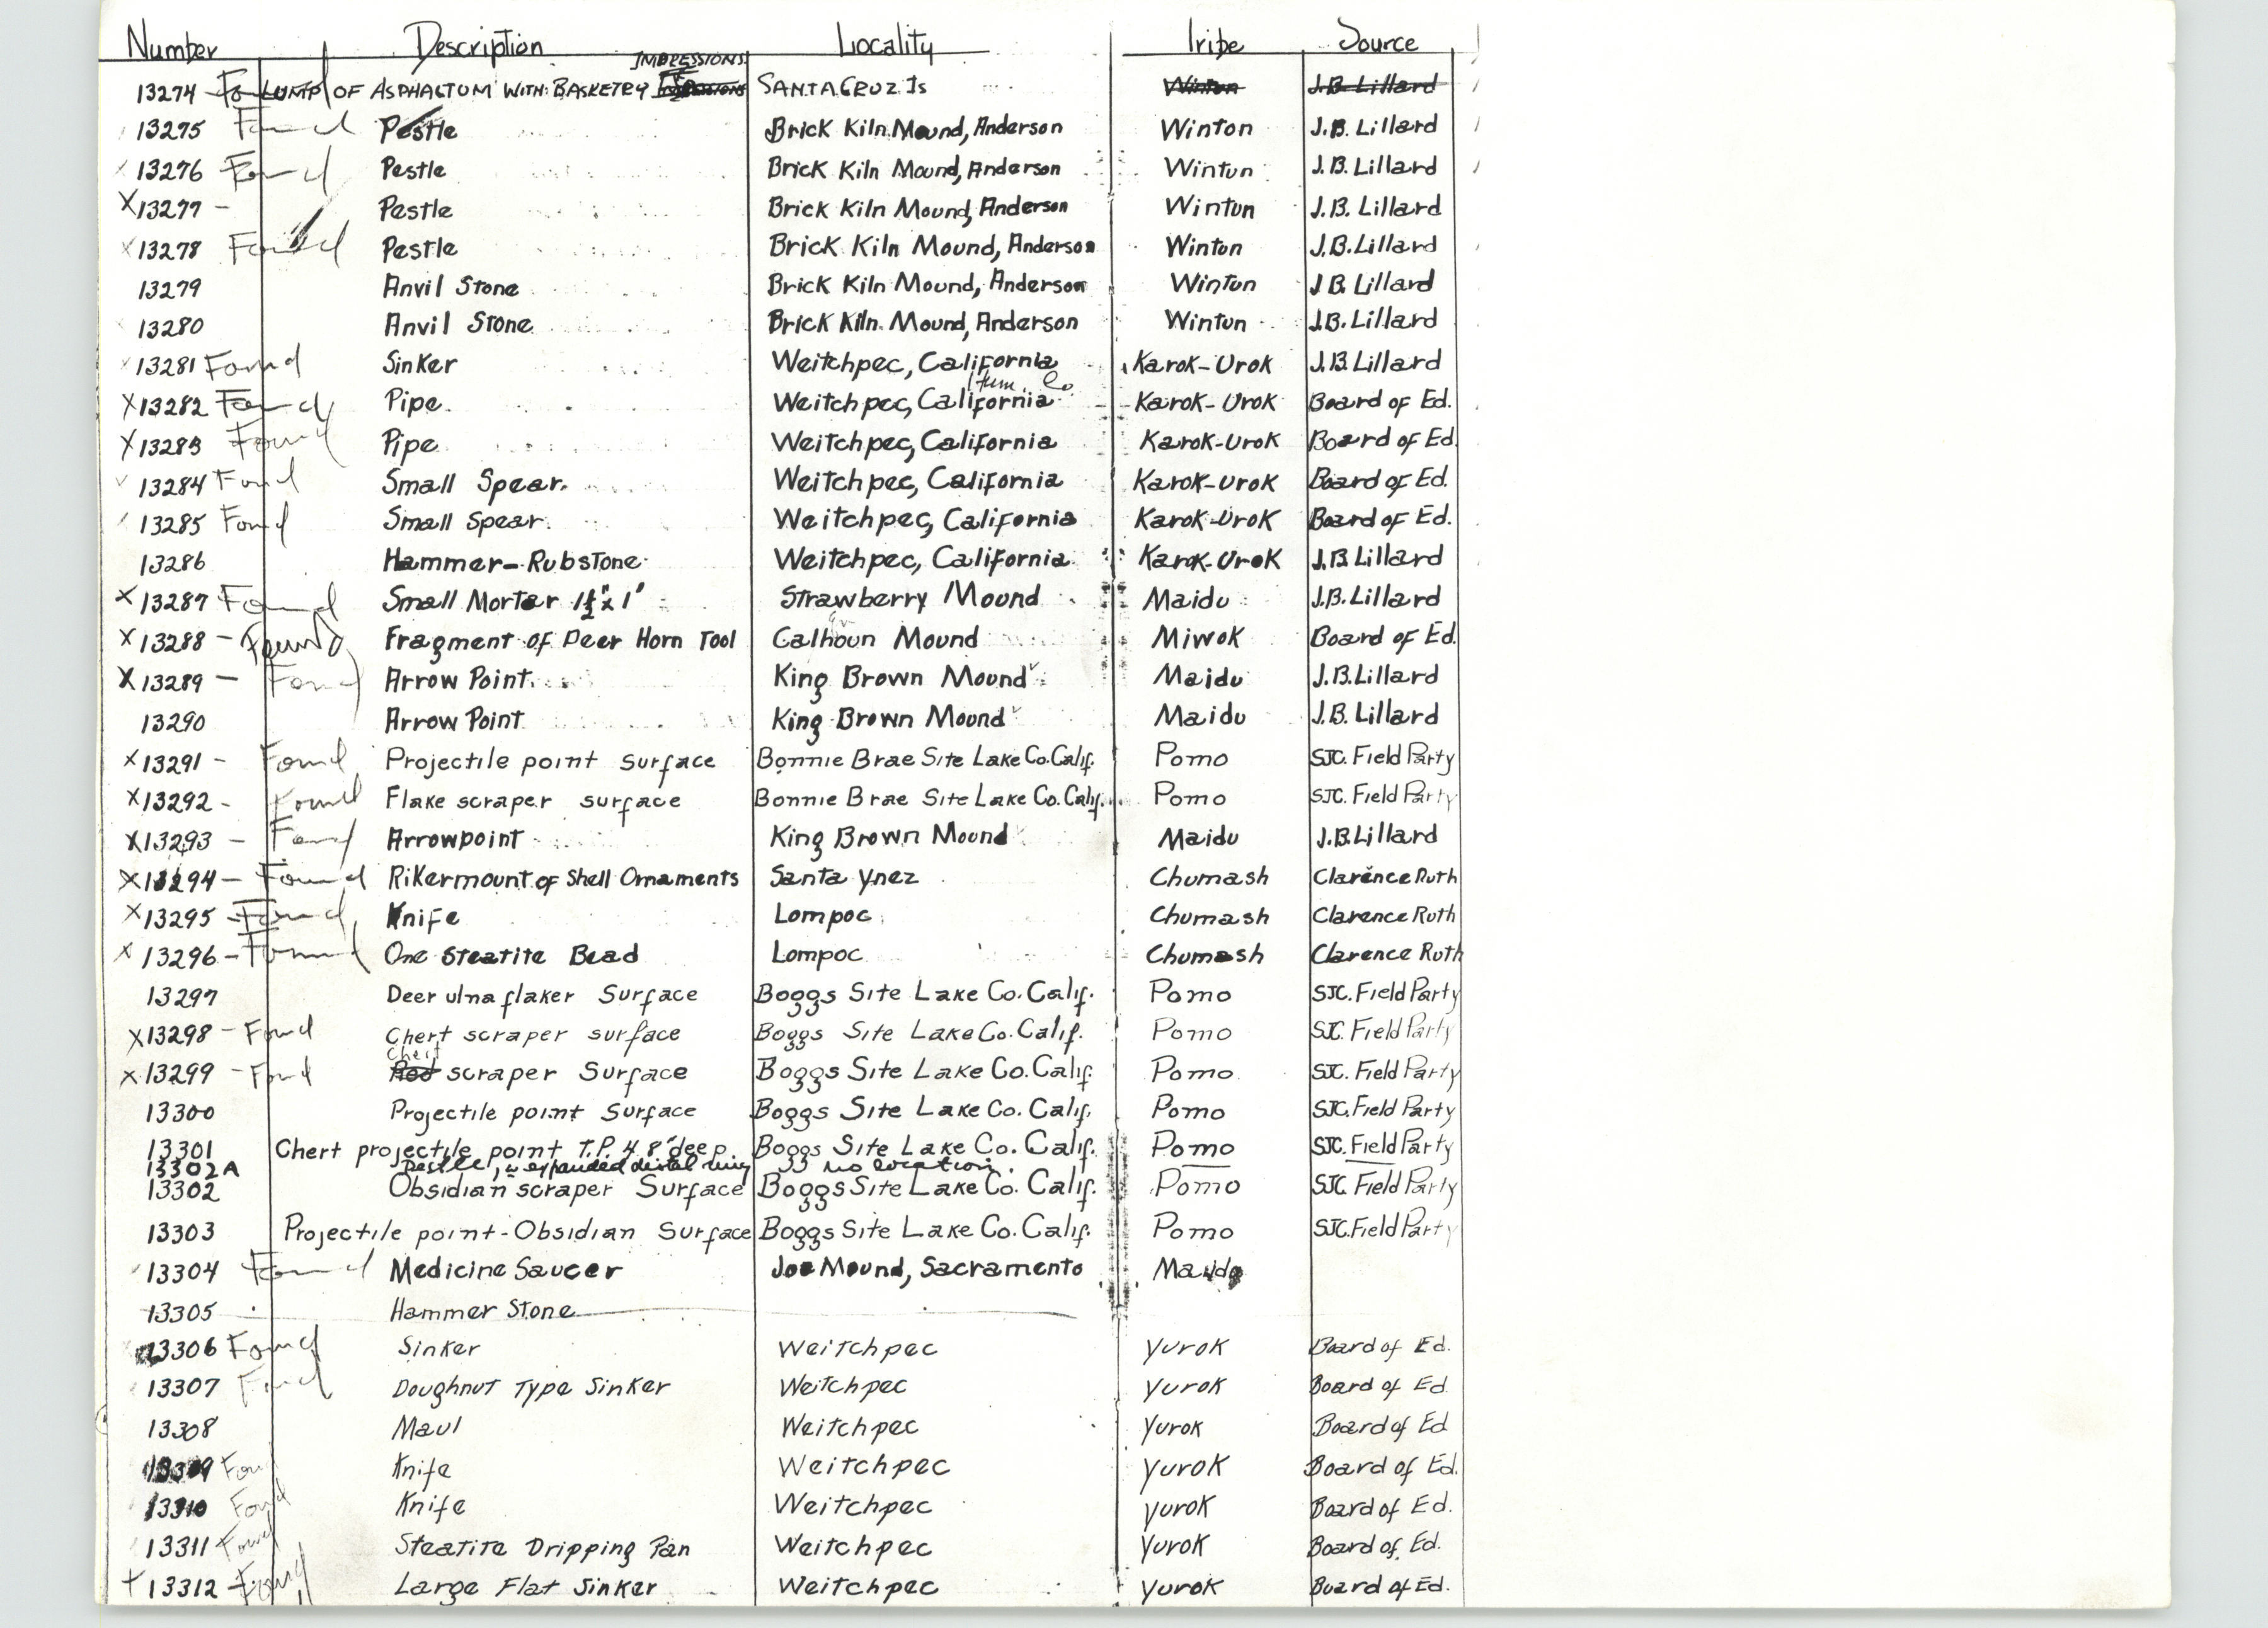 Number Description Locality Tribe Source
IMPRESSIONS
13274 Fo LUMP OF ASPHALTUM WITH BASKETRY SANTA CRUZ Is Wintun J.B. Lillard
13275 Found Pestle Brick Kiln Mound, Anderson Wintun J.B. Lillard
13276 Found Pestle Brick Kiln Mound, Anderson Wintun J.B. Lillard
X13277 - Pestle Brick Kiln Mound, Anderson Wintun J.B. Lillard
X13278 Found Pestle Brick Kiln Mound, Anderson Wintun J.B. Lillard
13279 Anvil Stone Brick Kiln Mound, Anderson Wintun J B. Lillard
13280 Anvil Stone Brick Kiln Mound, Anderson Wintun J.B. Lillard
13281 Found Sinker Weitchpec, California Karok-Urok J.B. Lillard
Hum. Co.
X13282 Found Pipe Weitchpec, California Karok-Urok Board of Ed.
X13283 Found Pipe Weitchpec, California Karok-Urok Board of Ed.
13284 Found Small Spear. Weitchpec, California Karok-Urok Board of Ed.
13285 Found Small Spear. Weitchpec, California Karok-Urok Board of Ed.
13286 Hammer-Rubstone Weitchpec, California Karok-Urok J.B. Lillard
X13287 Found Small Mortar 1½"x1" Strawberry Mound Maidu J.B. Lillard
X13288 - Found Fragment of Deer Horn Tool Calhoun Mound Miwok Board of Ed.
X13289 - Found Arrow Point. King Brown Mound Maidu J.B. Lillard
13290 Arrow Point King Brown Mound Maidu J.B. Lillard
X13291 - Found Projectile point surface Bonnie Brae Site Lake Co. Calif. Pomo SJC. Field Party
X13292 - Found Flake scraper surface Bonnie Brae Site Lake Co. Calif. Pomo SJC. Field Party
X13293 - Found Arrowpoint King Brown Mound Maidu J.B. Lillard
X13294 - Found Rikermount of Shell Ornaments Santa Ynez Chumash Clarence Ruth
X13295 - Found Knife Lompoc Chumash Clarence Ruth
X13296 - Found One Steatite Bead Lompoc Chumash Clarence Ruth
13297 Deer ulna flaker Surface Boggs Site Lake Co. Calif. Pomo SJC. Field Party
X13298 - Found Chert scraper surface Boggs Site Lake Co. Calif. Pomo SJC. Field Party
Chert
X13299 - Found Red scraper Surface Boggs Site Lake Co. Calif. Pomo SJC. Field Party
13300 Projectile point Surface Boggs Site Lake Co. Calif. Pomo SJC. Field Party
13301 Chert projectile point T.P. 4 8" deep Boggs Site Lake Co. Calif. Pomo SJC. Field Party
13302A Pestle, w expanded distal ring no location.
13302 Obsidian scraper Surface Boggs Site Lake Co. Calif. Pomo SJC. Field Party
13303 Projectile point-Obsidian Surface Boggs Site Lake Co. Calif. Pomo SJC. Field Party
13304 Found Medicine Saucer Joe Mound, Sacramento Maidu
13305 Hammer Stone
13306 Found Sinker Weitchpec Yurok Board of Ed.
13307 Found Doughnut Type Sinker Weitchpec Yurok Board of Ed
13308 Maul Weitchpec Yurok Board of Ed
13309 Foun Knife Weitchpec Yurok Board of Ed.
13310 Found Knife Weitchpec Yurok Board of Ed.
13311 Found Steatite Dripping Pan Weitchpec Yurok Board of Ed.
+13312 - Found Large Flat Sinker Weitchpec Yurok Board of Ed.